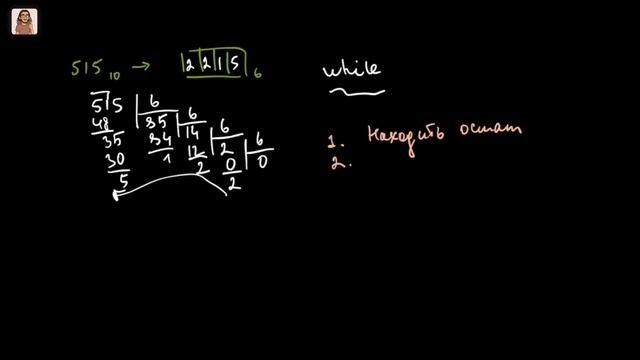 515₁₀ → 2215₆
while
515 6
48 85 6
35 84 14 6
30 1 12 2 6
5 2 0 0
2
1. Находить остат
2.